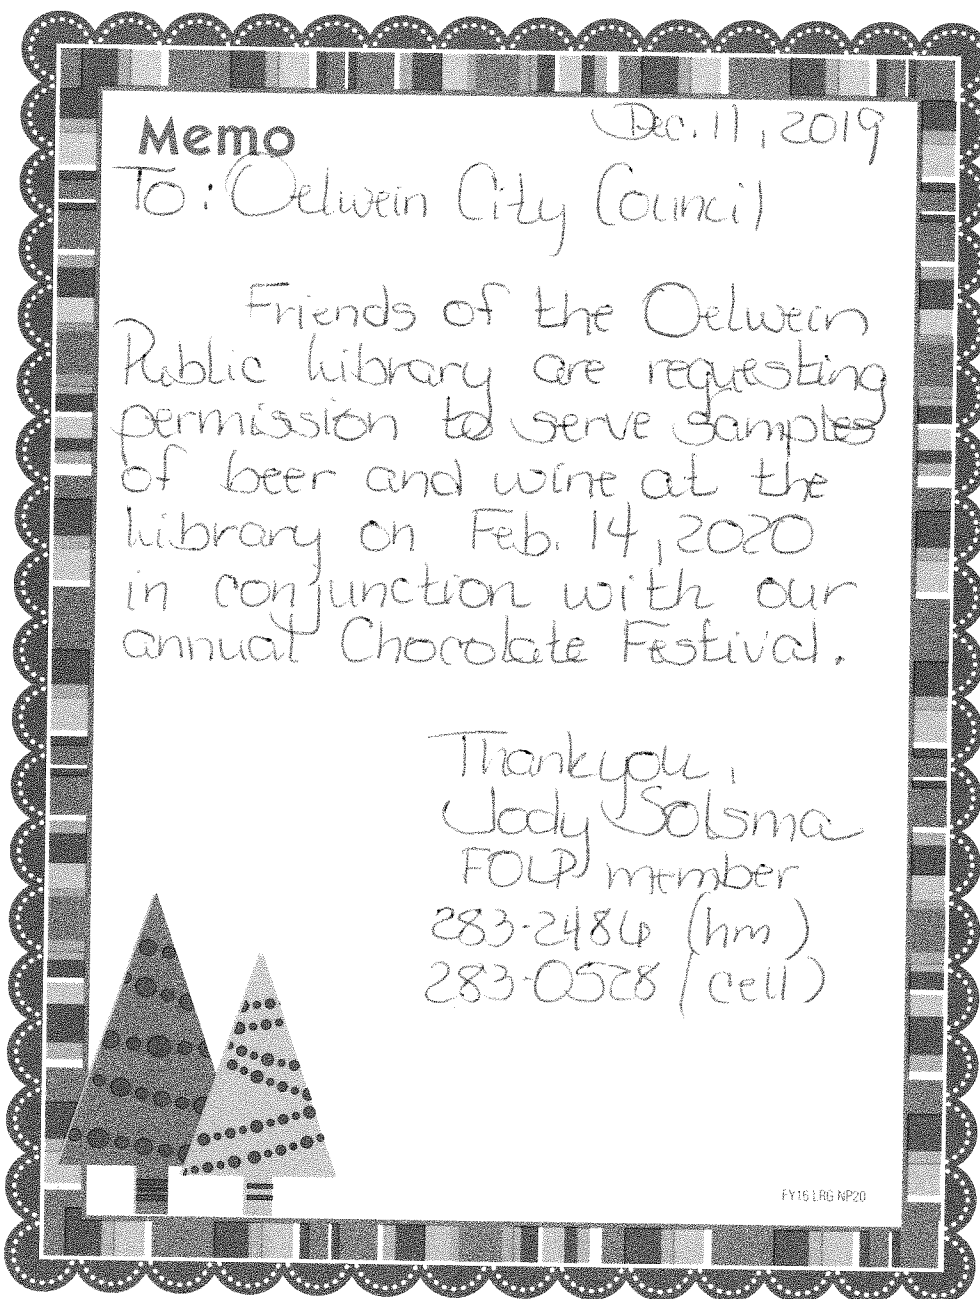 Memo
Dec. 11, 2019
To: Oelwein City Council
Friends of the Oelwein
Public Library are requesting
permission to serve samples
of beer and wine at the
library on Feb. 14, 2020
in conjunction with our
annual Chocolate Festival.
Thank you,
Jody Solsma
FOLP member
283-2486 (hm)
283-0528 (cell)
FY16 LRG NP20